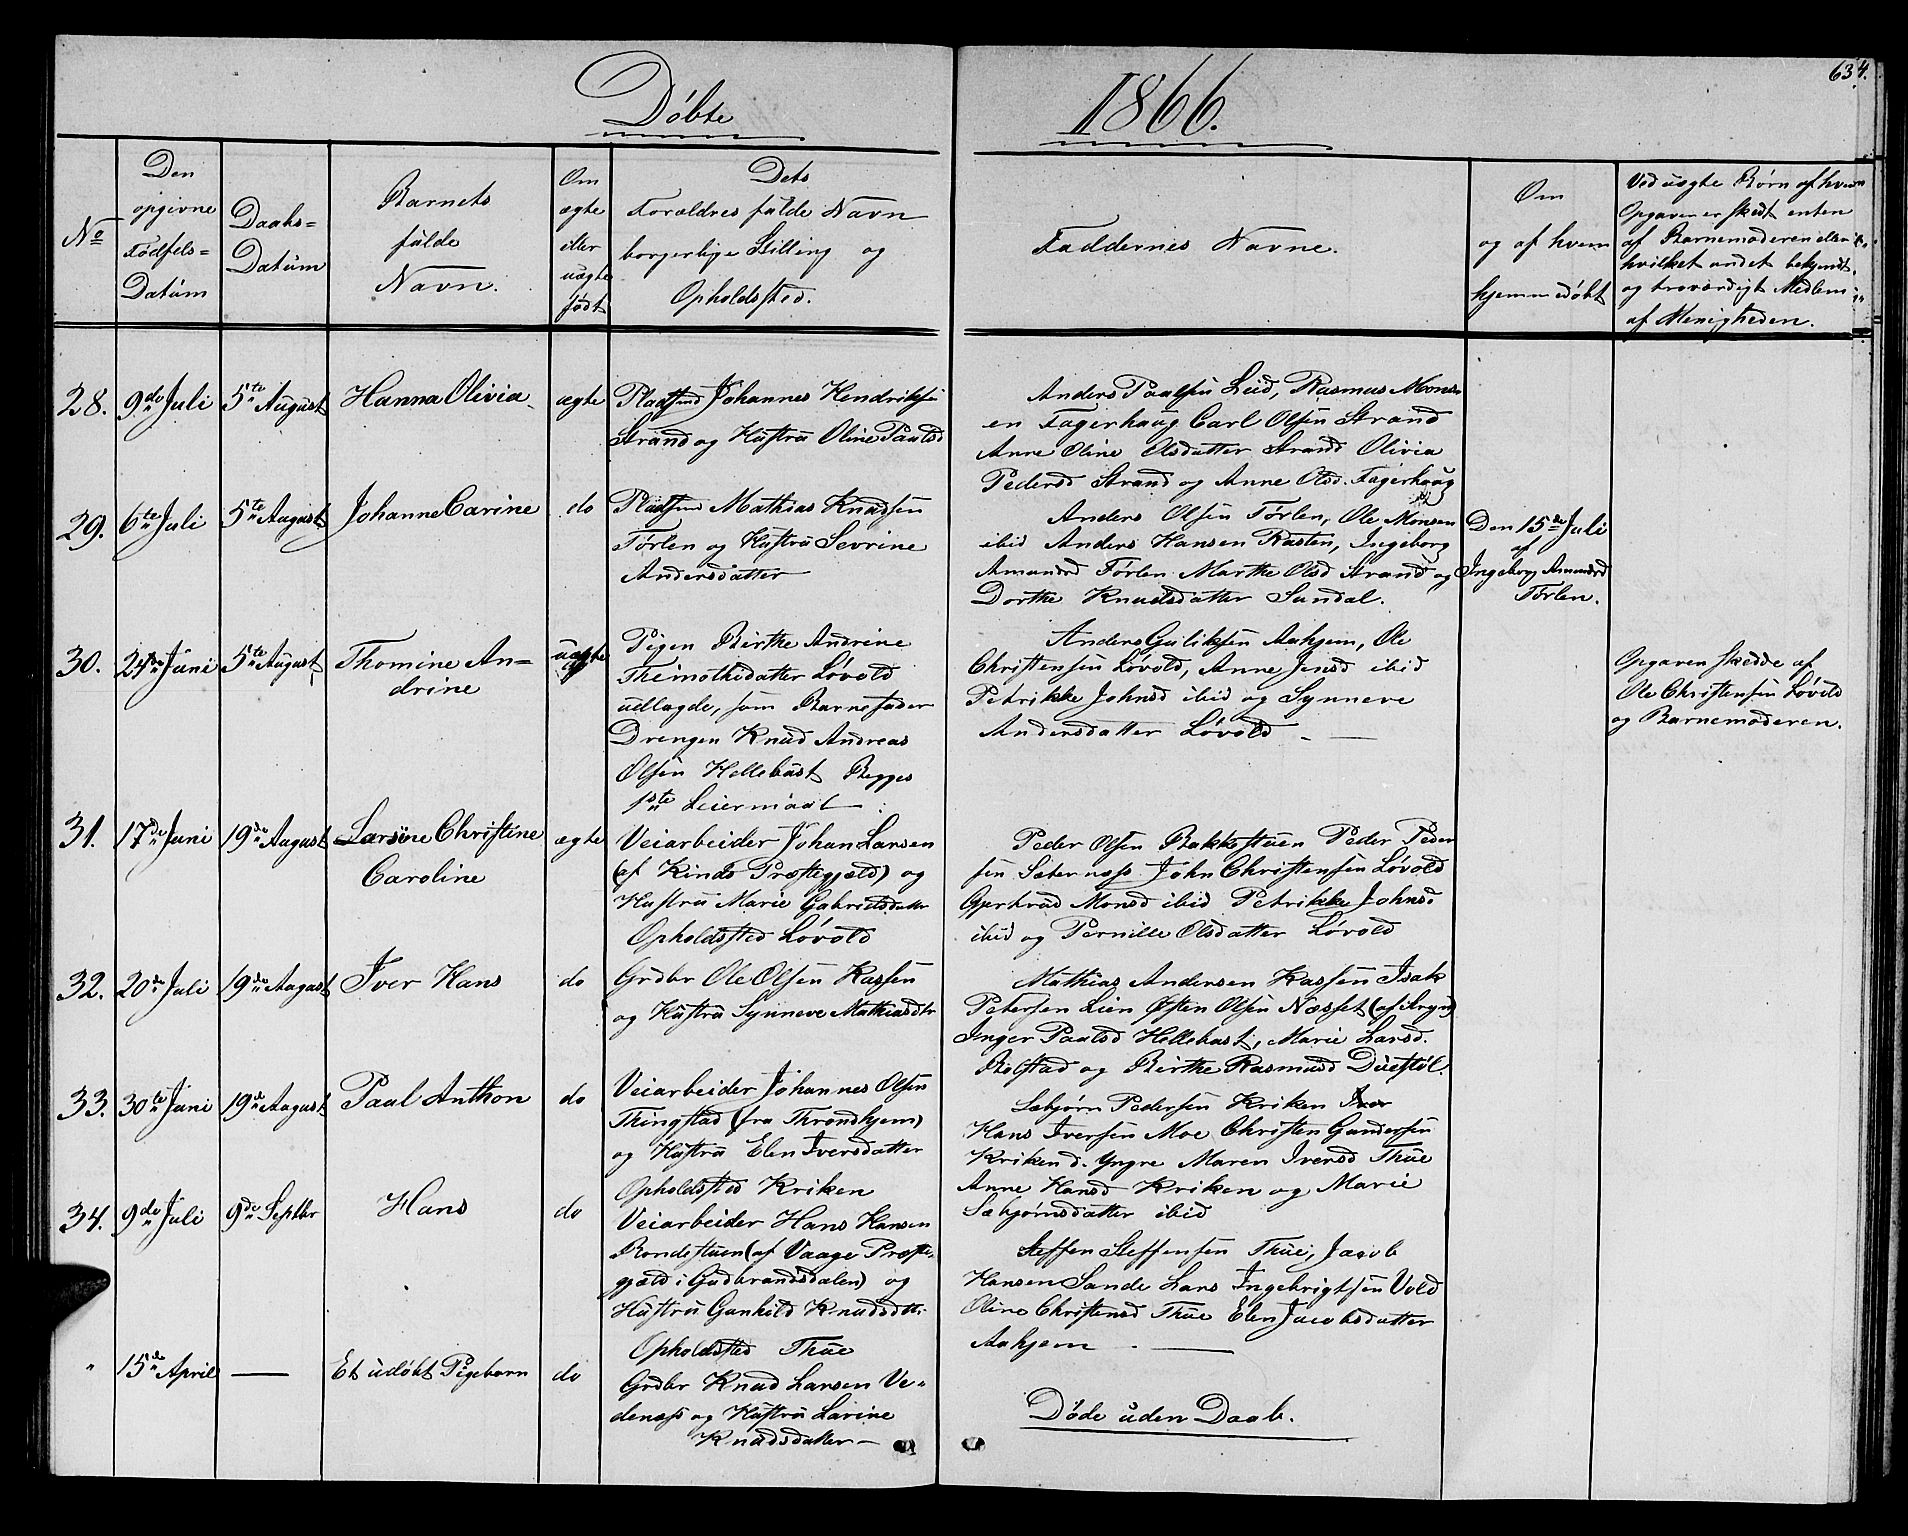 634.
Døbte
1866.
No
Den
opgivne
Fødsels=
Datum
Daabs=
Datum
Barnets
fulde
Navn.
Om
ægte
eller
uægte
født
Dets
Forældres fulde Navn
borgerlige Stilling og
Opholdsted.
Faddernes Navne.
Om
og af hvem
hjemmedøbt
Ved uægte Børn af hvem
Opgaven er skedt enten
af Barnemoderen eller
hvilket andet bekjendt
og troværdigt Medlem
af Menigheden.
28. 9de Juli 5te August Hanna Olivia ægte
Pladsmd Johannes Hendriksen
Strand og Hustru Oline Paulsd
Anders Paalsen Leid, Rasmus Mons
en Fagerhaug Carl Olsen Strand
Anne Oline Olsdatter Strand Olivia
Pedersd Strand og Anne Olsd. Fagerhaug
29. 6te Juli 5te August Johanne Carine do
Pladsmd Mathias Knudsen
Tørlen og Hustru Sevrine
Andersdatter
Anders Olsen Tørlen, Ole Monsen
ibid Anders Hansen Rasten, Ingeborg
Amundsd Tørlen Marthe Olsd Strand og
Dorthe Knudsdatter Sundal.
Den 15de Juli
af
Ingeborg Amundsd
Tørlen.
30. 24de Juni 5te August Thomine An=
drine
uægte
Pigen Birthe Andrine
Thimothedatter Løvold
udlagde, som Barnefader
Drengen Knud Andreas
Olsen Hellebust Begges
1ste Leiermaal
Anders Guliksen Aahjem, Ole
Christensen Løvold, Anne Jensd ibid
Petrikke Johnsd ibid og Synneve
Andersdatter Løvold
Opgaven skedde af
Ole Christensen Løvold
og Barnemoderen.
31. 17de Juni 19de August Larsine Christine
Caroline
ægte
Veiarbeider Johan Larsen
(af Kinds Præstegjæld) og
Hustru Marie Gabrielsdatter
Opholdsted Løvold
Peder Olsen Bakkestuen Peder Peder
sen Sæternæss John Christensen Løvold
Gjertrud Monsd ibid Petrikke Johnsd
ibid og Pernille Olsdatter Løvold
32. 20de Juli 19de August Iver Hans do
Grdbr Ole Olsen Kassen
og Hustru Synneve Mathiasdtr
Mathias Andersen Kassen Isak
Petersen Lien Østen Olsen Næsset (af Stryn)
Inger Paulsd Hellebust, Marie Larsd.
Bolstad og Birthe Rasmusd Duestøl.
33. 30te Juni 19de August Paul Anthon do
Veiarbeider Johannes Olsen
Thingstad (fra Throndhjem)
og Hustru Elen Iversdatter
Opholdsted Kriken
Sæbjørn Pedersen Kriken
Hans Iversen Moe Christen Gundersen
Kriken d. Yngre Maren Iversd Thue
Anne Hansd Kriken og Marie
Sæbjørnsdatter ibid
34. 9de Juli 9de Septbr Hans do
Veiarbeider Hans Hansen
Bondestuen (af Vaage Præste=
gjæld i Gudbrandsdalen) og
Hustru Gunhild Knudsdtr
Opholdsted Thue
Steffen Steffensen Thue, Jacob
Hansen Sande Lars Ingebrigtsen Vold
Oline Christensd Thue Elen Jacobsdatter
Aahjem
" 15de April — Et udøbt Pigebarn do
Grdbr Knud Larsen Ve=
denæss og Hustru Larine
Knudsdatter
Døde uden Daab.